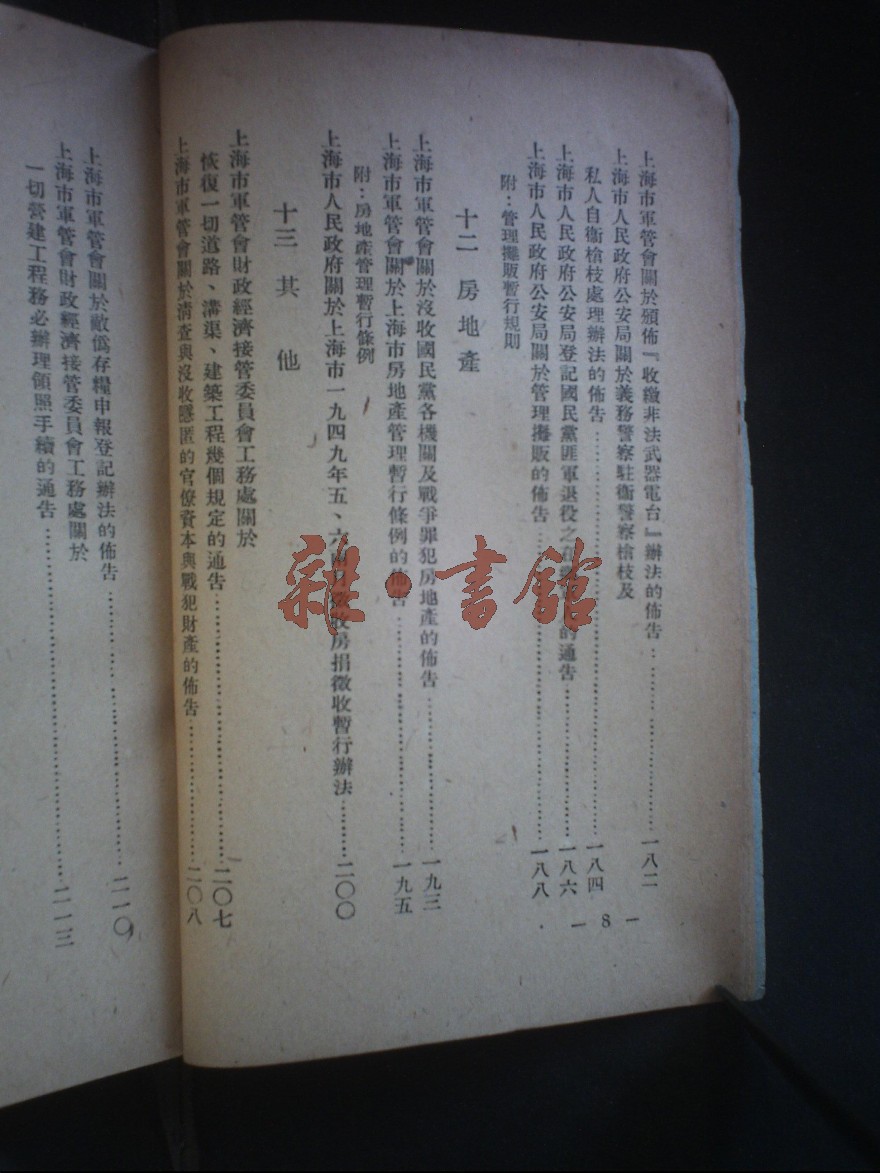 上海市軍管會關於頒佈『收繳非法武器電台』辦法的佈告……一八二
上海市人民政府公安局關於義務警察駐衛警察槍枝及
私人自衛槍枝處理辦法的佈告……一八四
上海市人民政府公安局登記國民黨匪軍退役之在 的通告……一八六
上海市人民政府公安局關於管理攤販的佈告……一八八
附：管理攤販暫行規則
十二 房地產
上海市軍管會關於沒收國民黨各機關及戰爭罪犯房地產的佈告……一九三
上海市軍管會關於上海市房地產管理暫行條例的佈告……一九五
附：房地產管理暫行條例
上海市人民政府關於上海市一九四九年五、六兩月徵收房捐徵收暫行辦法……二〇〇
十三 其他
上海市軍管會財政經濟接管委員會工務處關於
恢復一切道路、溝渠、建築工程幾個規定的通告……二〇七
上海市軍管會關於清查與沒收隱匿的官僚資本與戰犯財產的佈告……二〇八
— 8 —
上海市軍管會關於敵偽存糧申報登記辦法的佈告……二一〇
上海市軍管會財政經濟接管委員會工務處關於
一切營建工程務必辦理領照手續的通告……二一三
雜·書館